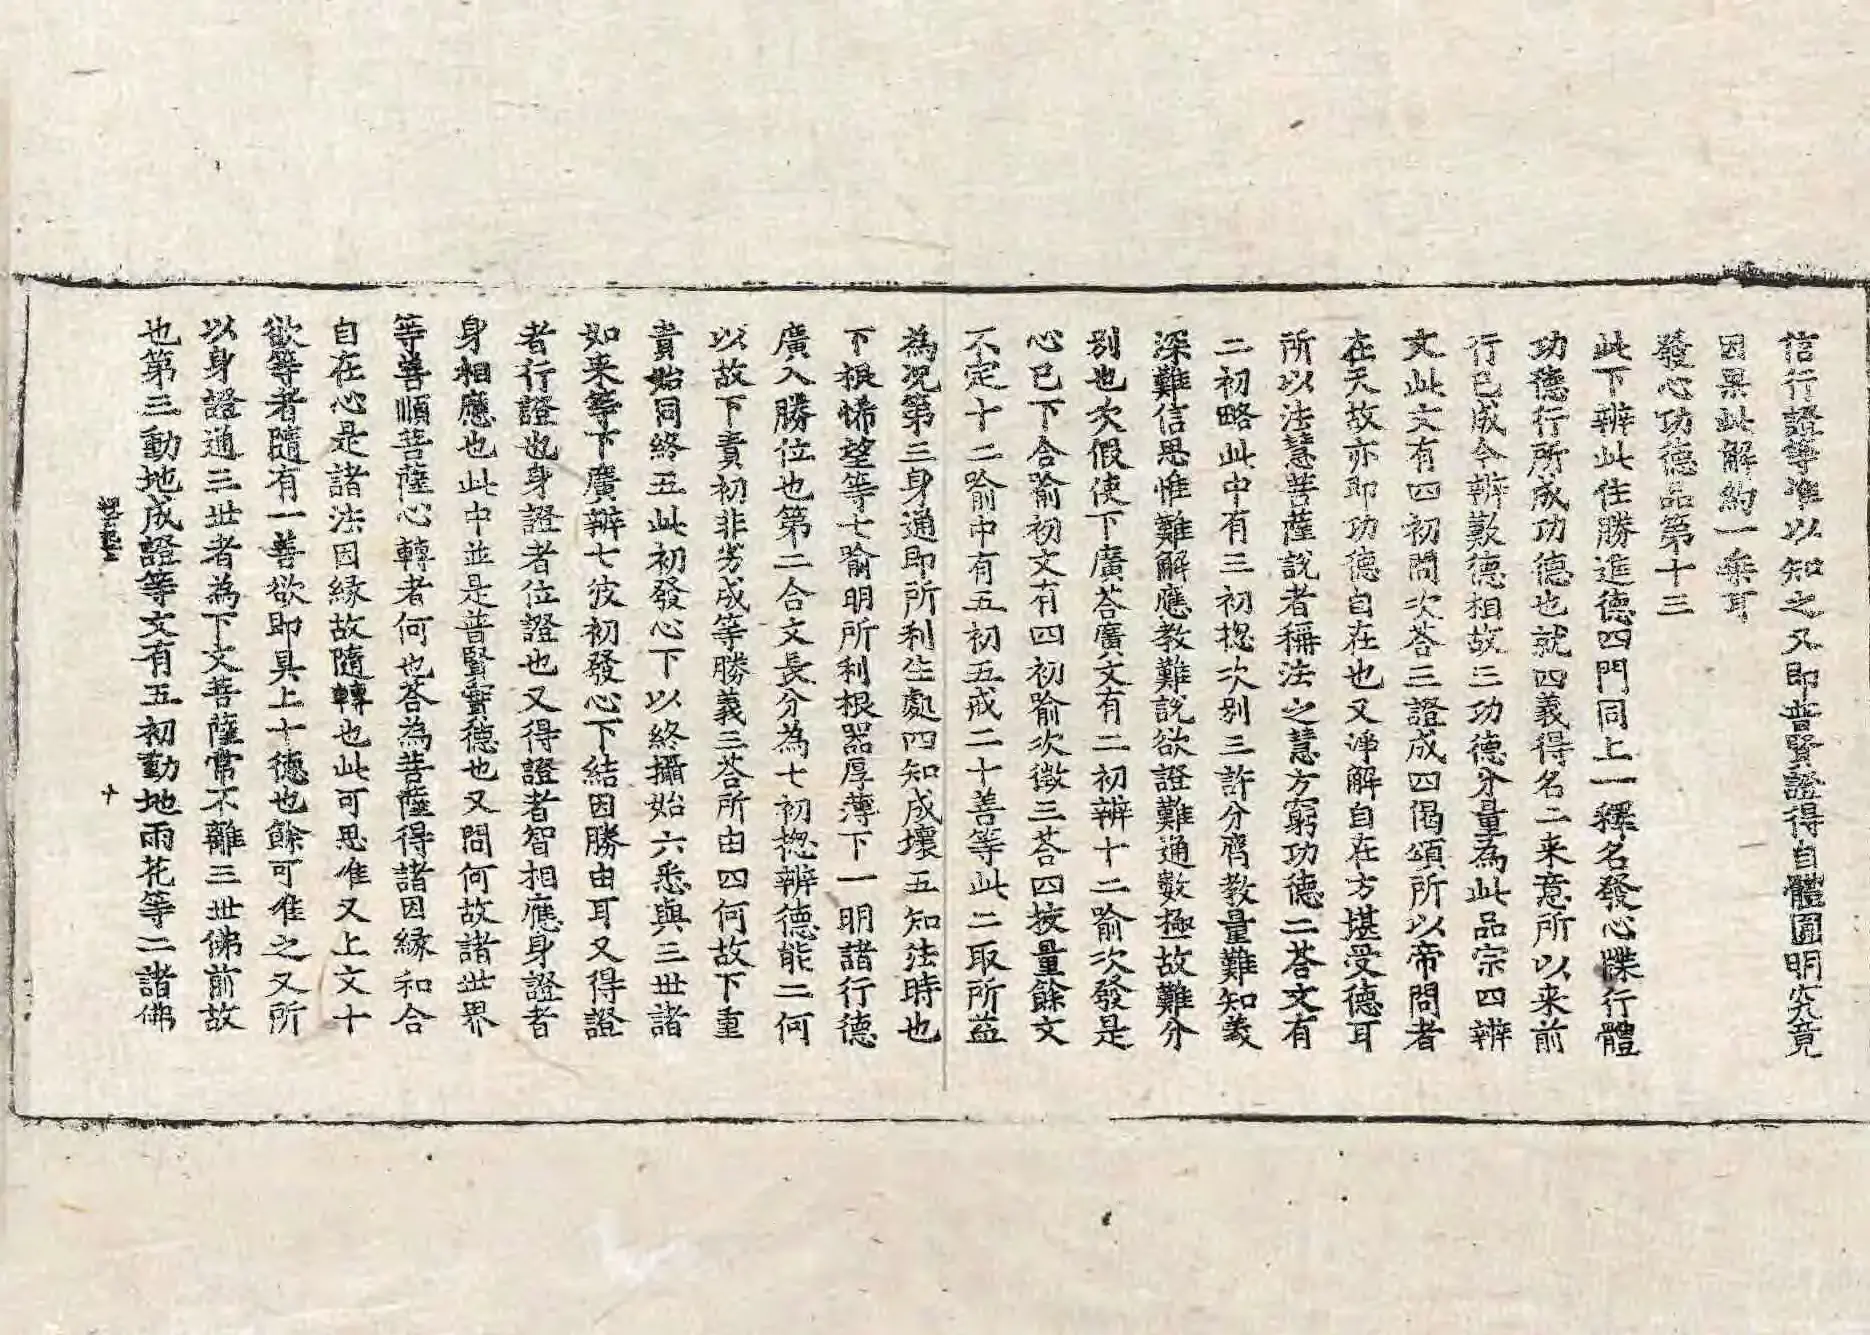 信行證等准以知之又即普賢證得自體圓明究竟
因果此解約一乘耳
發心功德品第十三
此下辨此住勝進德四門同上一釋名發心牒行體
功德行所成功德也就四義得名二来意所以来前
行已成今辨歎德相故三功德分量為此品宗四辨
文此文有四初問次荅三證成四偈頌所以帝問者
在天故亦即功德自在也又淨解自在方堪受德耳
所以法慧菩薩說者稱法之慧方窮功德二荅文有
二初略此中有三初揔次别三許分齊教量難知義
深難信思惟難解應教難說欲證難通數極故難分
别也次假使下廣荅廣文有二初辨十二喻次發是
心已下合喻初文有四初喻次徴三荅四挍量餘文
不定十二喻中有五初五戒二十善等此二取所益
為况第三身通即所利生處四知成壞五知法時也
下根悕望等七喻明所利根器厚薄下一明諸行德
廣入勝位也第二合文長分為七初揔辨德能二何
以故下責初非劣成等勝義三荅所由四何故下重
責始同終五此初發心下以終攝始六悉與三世諸
如来等下廣辨七彼初發心下結因勝由耳又得證
者行證也身證者位證也又得證者智相應身證者
身相應也此中並是普賢實德也又問何故諸世界
等善順菩薩心轉者何也荅為菩薩得諸因緣和合
自在心是諸法因緣故隨轉也此可思准又上文十
欲等者隨有一善欲即具上十德也餘可准之又所
以身證通三世者為下文菩薩常不離三世佛前故
也第三動地成證等文有五初動地雨花等二諸佛
十